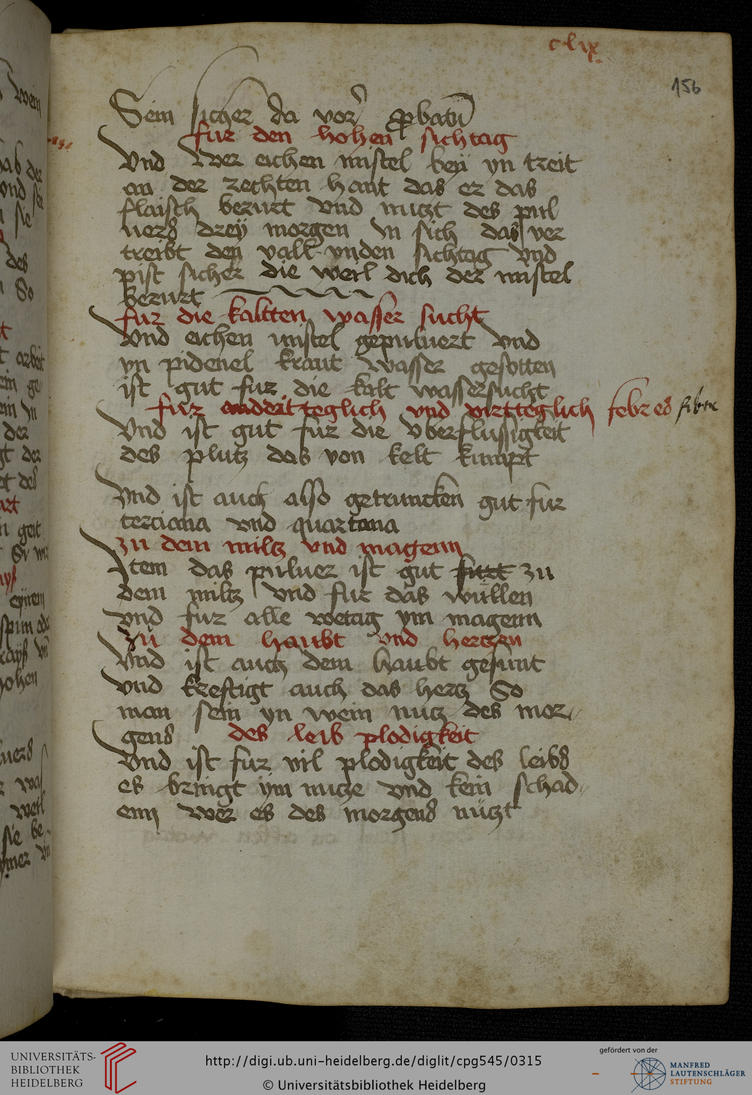 clix
156
Sein sicher da vor probatum
fur den hohen sichtag
Vnd Wer eichen mistel bey yn treit
an der rechten hant das er das
flaisch berurt vnd nutzt des pul
uers drey morgen yn sich das ver
treibt den vall vnden sichtag vnd
pist sicher die weil dich der mistel
berurt
fur die kaltten wasser sucht
Vnd eichen mistel gepuluert vnd
yn pidenel kraut wasser gesotten
ist gut fur die kalt wassersucht
fur anderit teglich vnd virtteglich febres
Vnd ist gut fur die vberflussigkeit
des plutz das von kelt kumpt
Vnd ist auch also getruncken gut fur
terciana vnd quartana
zu dem miltz vnd magenn
Item das puluer ist gut furt zu
dem miltz vnd fur das wullen
vnd fur alle wetag ym magenn
Zu dem haubt vnd hertzen
Vnd ist auch dem haubt gesunt
vnd kreftigt auch das hertz So
man sein yn wein nutz des mor
gens des leib plodigkeit
Vnd ist fur vil plodigkeit des leibs
es bringt ym nutze vnd kein schad
enn wer es des morgens nutzt
UNIVERSITÄTS-
BIBLIOTHEK
HEIDELBERG
http://digi.ub.uni-heidelberg.de/diglit/cpg545/0315
© Universitätsbibliothek Heidelberg
gefördert von der
MANFRED
LAUTENSCHLÄGER
STIFTUNG